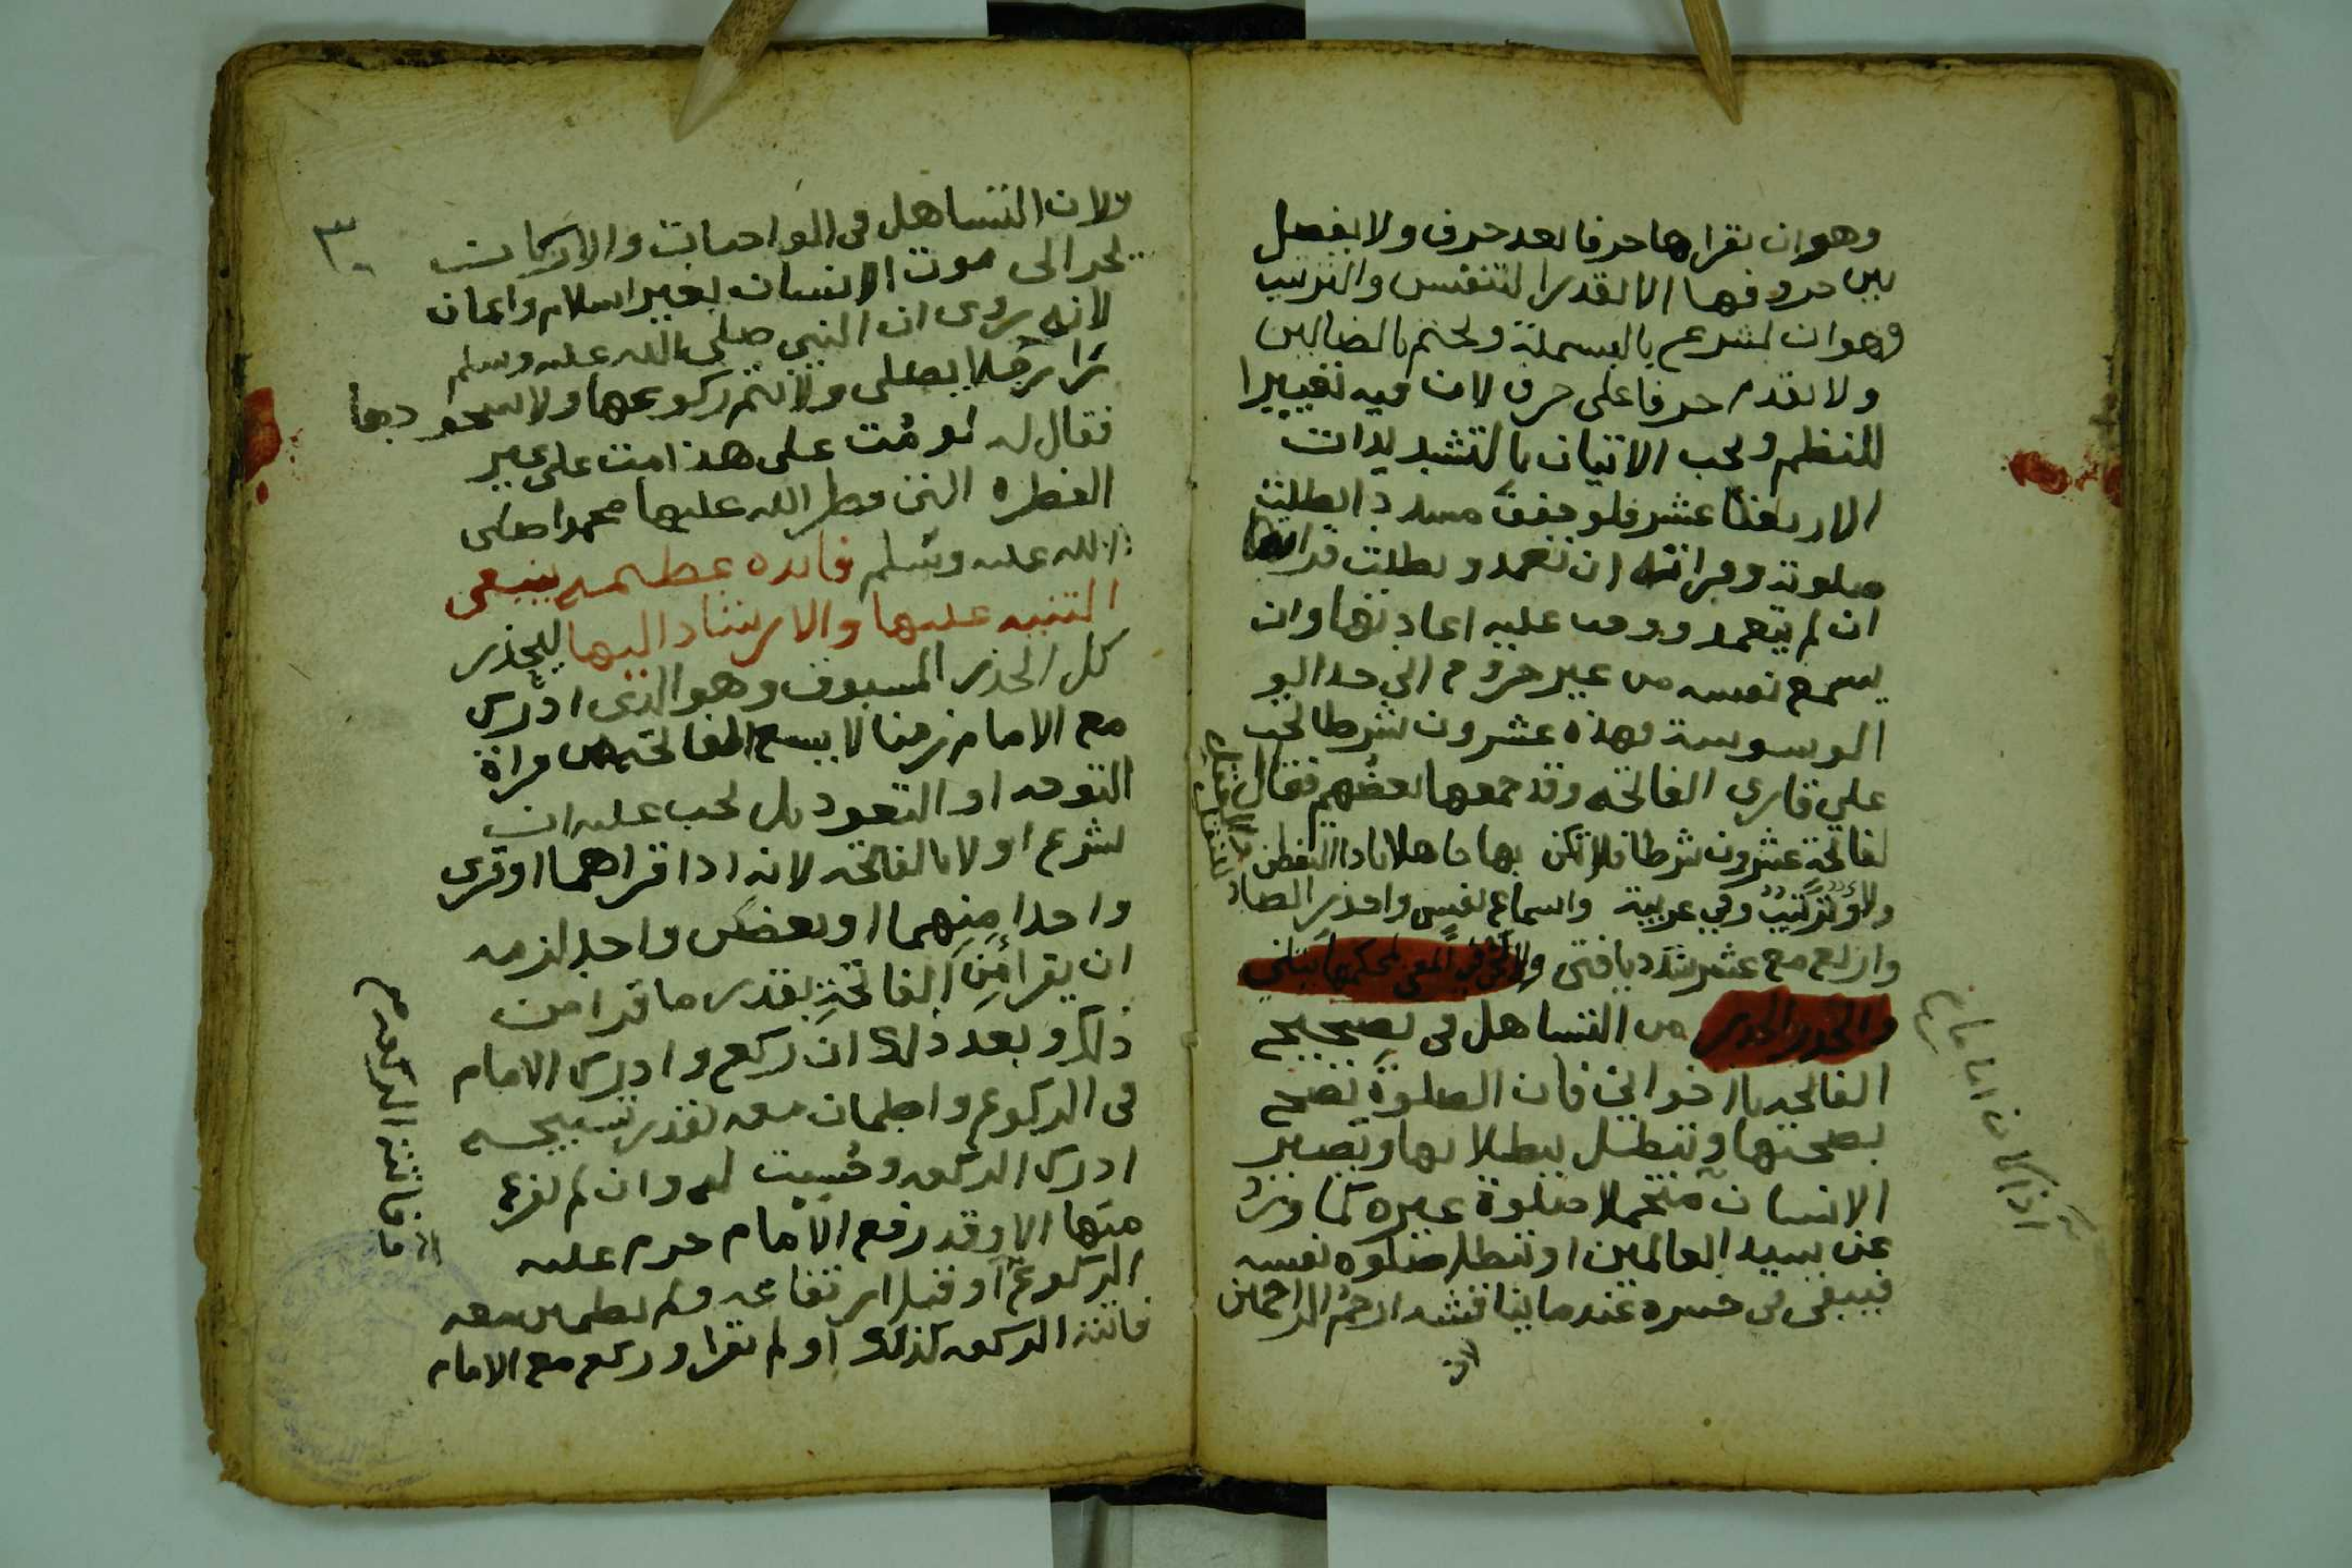 وهو ان يقراها حرفا بعد حرف ولا يفصل
بين حروفها الا بقدر التنفس والترتيب
وهو ان يشرع بالبسملة ويختم بالضالين
ولا يقدم حرفا على حرف لان فيه تغييرا
للنظم ويجب الاتيان بالتشديدات
الاربعة عشر فلو خفف مشددا بطلت
صلوته وقراته ان تعمد وبطلت قراتها
ان لم يتعمد ووجب عليه اعادتها وان
يسمع نفسه من غير خروج الى حد
الوسوسة فهذه عشرون شرطا تجب
على قارى الفاتحة وقد جمعها بعضهم فقال
لفاتحة عشرون شرطا فلا تكن بها جاهلا يا ذا التفطن
ولاء وترتيب وفي عربية واسماع نفس واحذر الصاد
واربع مع عشر شدد يا فتى ولا
والحذر الحذر من التساهل في تصحيح
الفاتحة يا اخواني فان الصلوة تصح
بصحتها وتبطل ببطلانها ويصير
الانسان متحملا صلوة غيره كما ورد
عن سيد العالمين او تبطل صلوة نفسه
فيبقى في حسره عندما يناقشه ارحم الراحمين
لان
اذا كان اماما
٣٠
ولان التساهل في الواجبات والاركان
يجر الى موت الانسان بغير اسلام وايمان
لانه روى ان النبي صلى الله عليه وسلم
را رجلا يصلى ولا يتم ركوعها ولا سجودها
فقال له لو مُت على هذا مت على غير
الفطره التى فطر الله عليها محمدا صلى
الله عليه وسلم فائده عظيمه ينبغي
التنبيه عليها والارشاد اليها ليحذر
كل الحذر المسبوق وهو الذى ادرك
مع الامام زمنا لا يسع الفاتحه من قراة
التوجه او التعوذ بل يجب عليه ان
يشرع اولا بالفاتحه لانه اذا قراهما او قرى
واحدا منهما او بعضَ واحد لزمه
ان يقرا مِنَ الفاتحةِ بقدر ما قرا من
ذلك وبعد ذلك ان ركع وادرك الامام
في الركوع واطمان معه بقدر تسبيحه
ادرك الركعه وحُسِبت له وان لم يفرغ
منها الا وقد رفع الامام حرم عليه
الركوع او قبل ارتفاعه ولم يطمين معه
فاتته الركعه كذلك او لم يقرا وركع مع الامام
فاتته الركعه